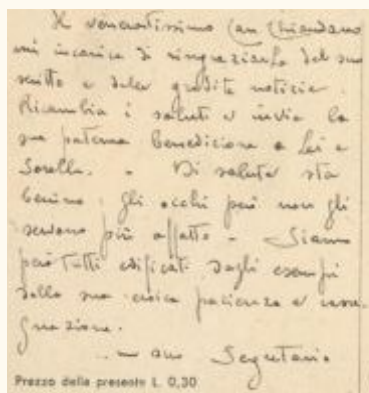 Il veneratissimo Can Chiandano
mi incarica di ringraziarla del suo
scritto e delle gradite notizie.
Ricambia i saluti e invia la
sua paterna Benedizione a Lei e
Sorella. - Di salute sta
benino: gli occhi però non gli
servono più affatto - Siamo
però tutti edificati dagli esempi
della sua eroica pazienza e rasse-
gnazione.
suo Segretario
Prezzo della presente L. 0,30